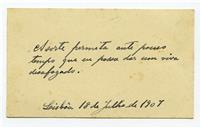 A sorte permita ante pouco
tempo que eu possa dar um viva
desafogado.
Lisbôa 18 de Julho de 1907